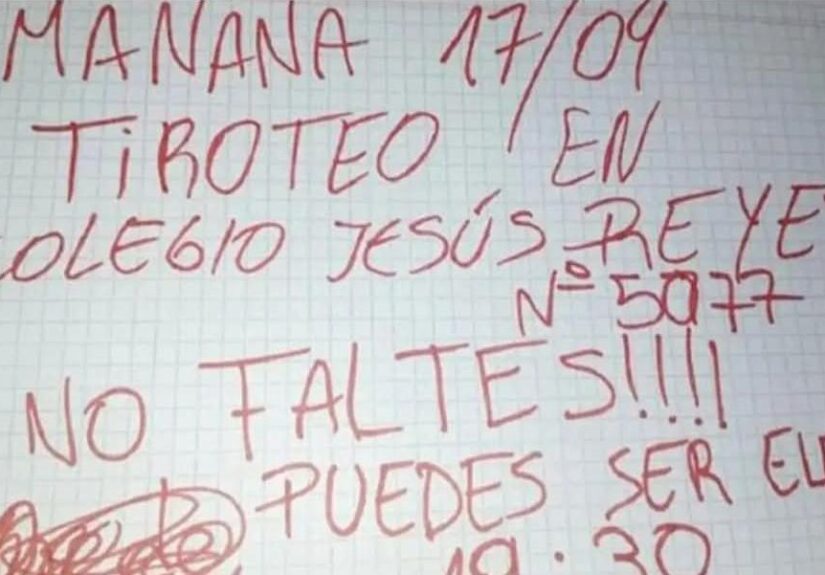 MAÑANA 17/09
TiROTEO EN
COLEGIO JESÚS REYE
Nº 5077
NO FALTES!!!!
PUEDES SER EL
19:30